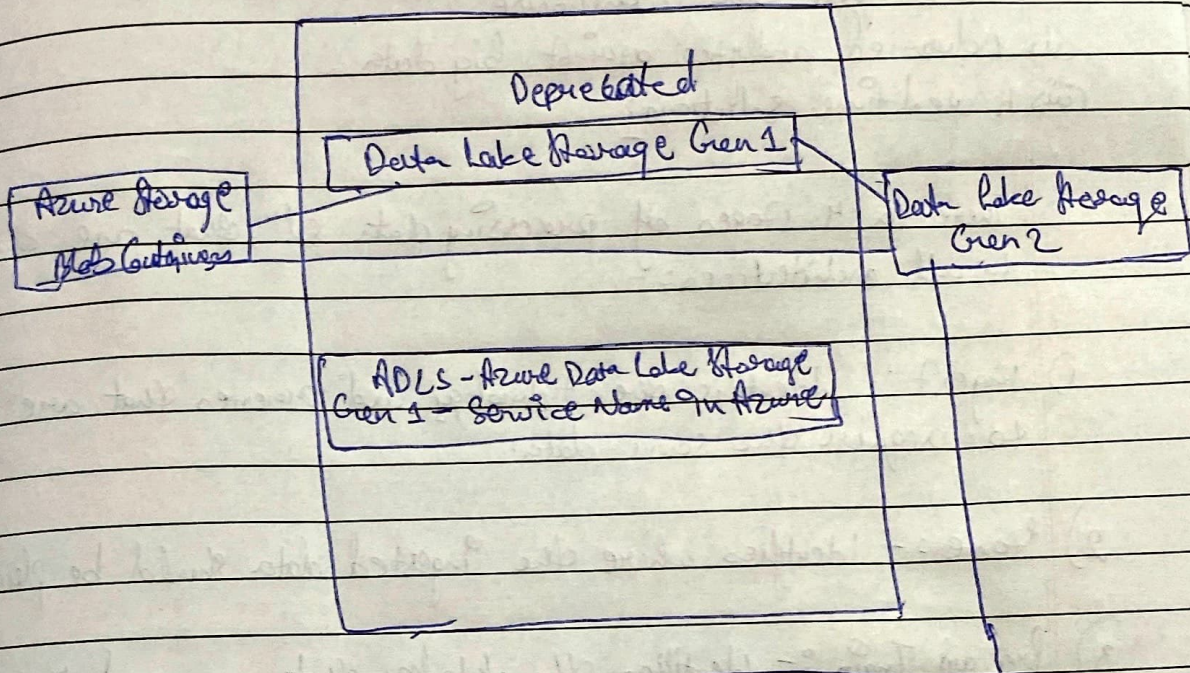 Deprecated
Data Lake Storage Gen 1
Azure Storage
Blob Containers
Data Lake Storage
Gen 2
ADLS - Azure Data Lake Storage
Gen 1 - Service Name In Azure